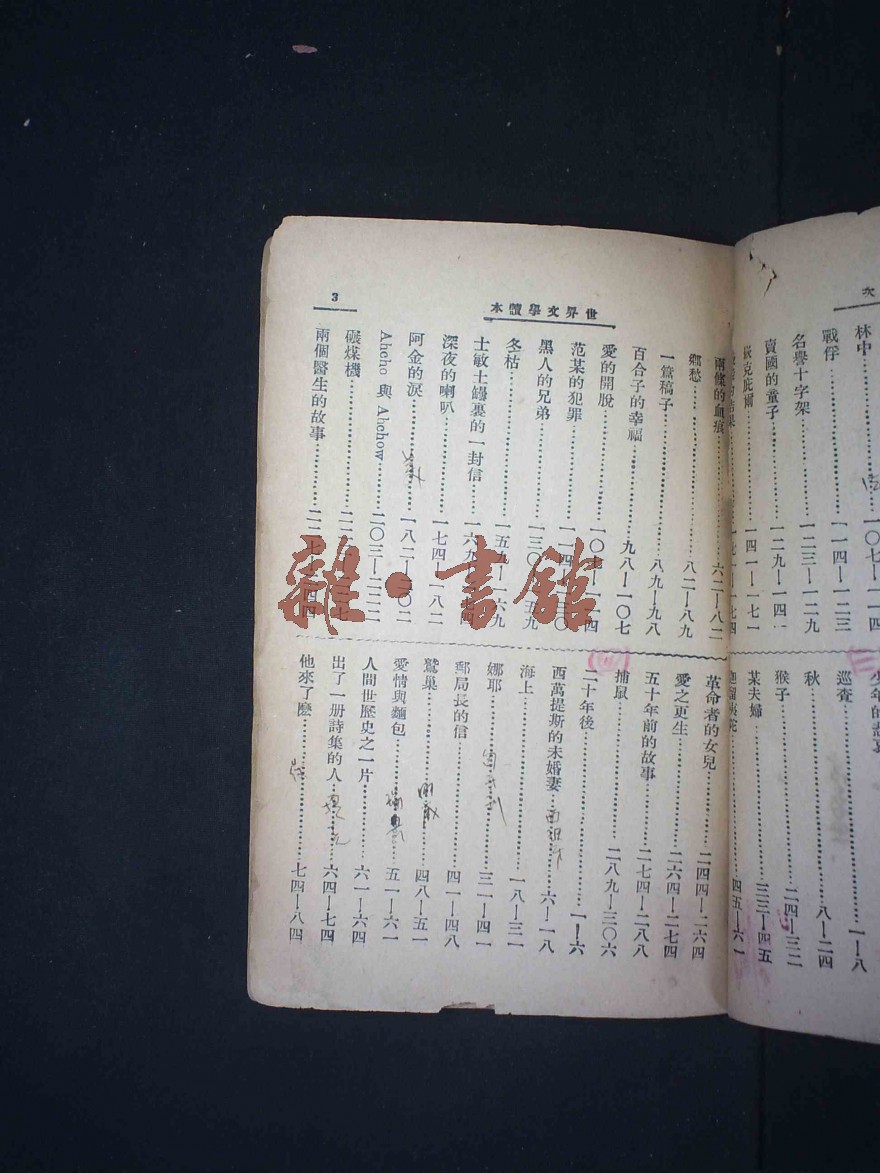 次
林中……一〇七—一一四
戰俘……一一四—一二三
名譽十字架……一二三—一二九
賣國的童子……一二九—一四一
嵌克庇爾……一四一—一七一
的結果……一七一—一七四
三
巡查……一—八
秋……八—二四
猴子……二四—三二
某夫婦……三三—四五
四五—六一
世界文學讀本
3
兩條的血痕……六二—八二
鄉愁……八二—八九
一篇稿子……八九—九八
百合子的幸福……九八—一〇七
愛的開脫……一〇七—一一四
范某的犯罪……一一四—一三〇
黑人的兄弟……一三〇—一五九
冬枯……一五九—一六九
士敏土罎裏的一封信……一六九—一七四
深夜的喇叭……一七四—一八二
阿金的淚……一八二—二〇二
Ahcho 與 Ahchow……二〇三—二二二
碾煤機
兩個醫生的故事……二二七—二四四
革命者的女兒……二四四—二六四
愛之更生……二六四—二七四
五十年前的故事……二七四—二八八
捕鼠……二八九—三〇六
(四)
二十年後……一—六
西萬提斯的未婚妻……六—一八
海上……一八—三一
娜耶……三一—四一
郵局長的信……四一—四八
鷲巢……四八—五一
愛情與麵包……五一—六一
人間世歷史之一片……六一—六四
出了一册詩集的人……六四—七四
他來了麽……七四—八四
雜·書館